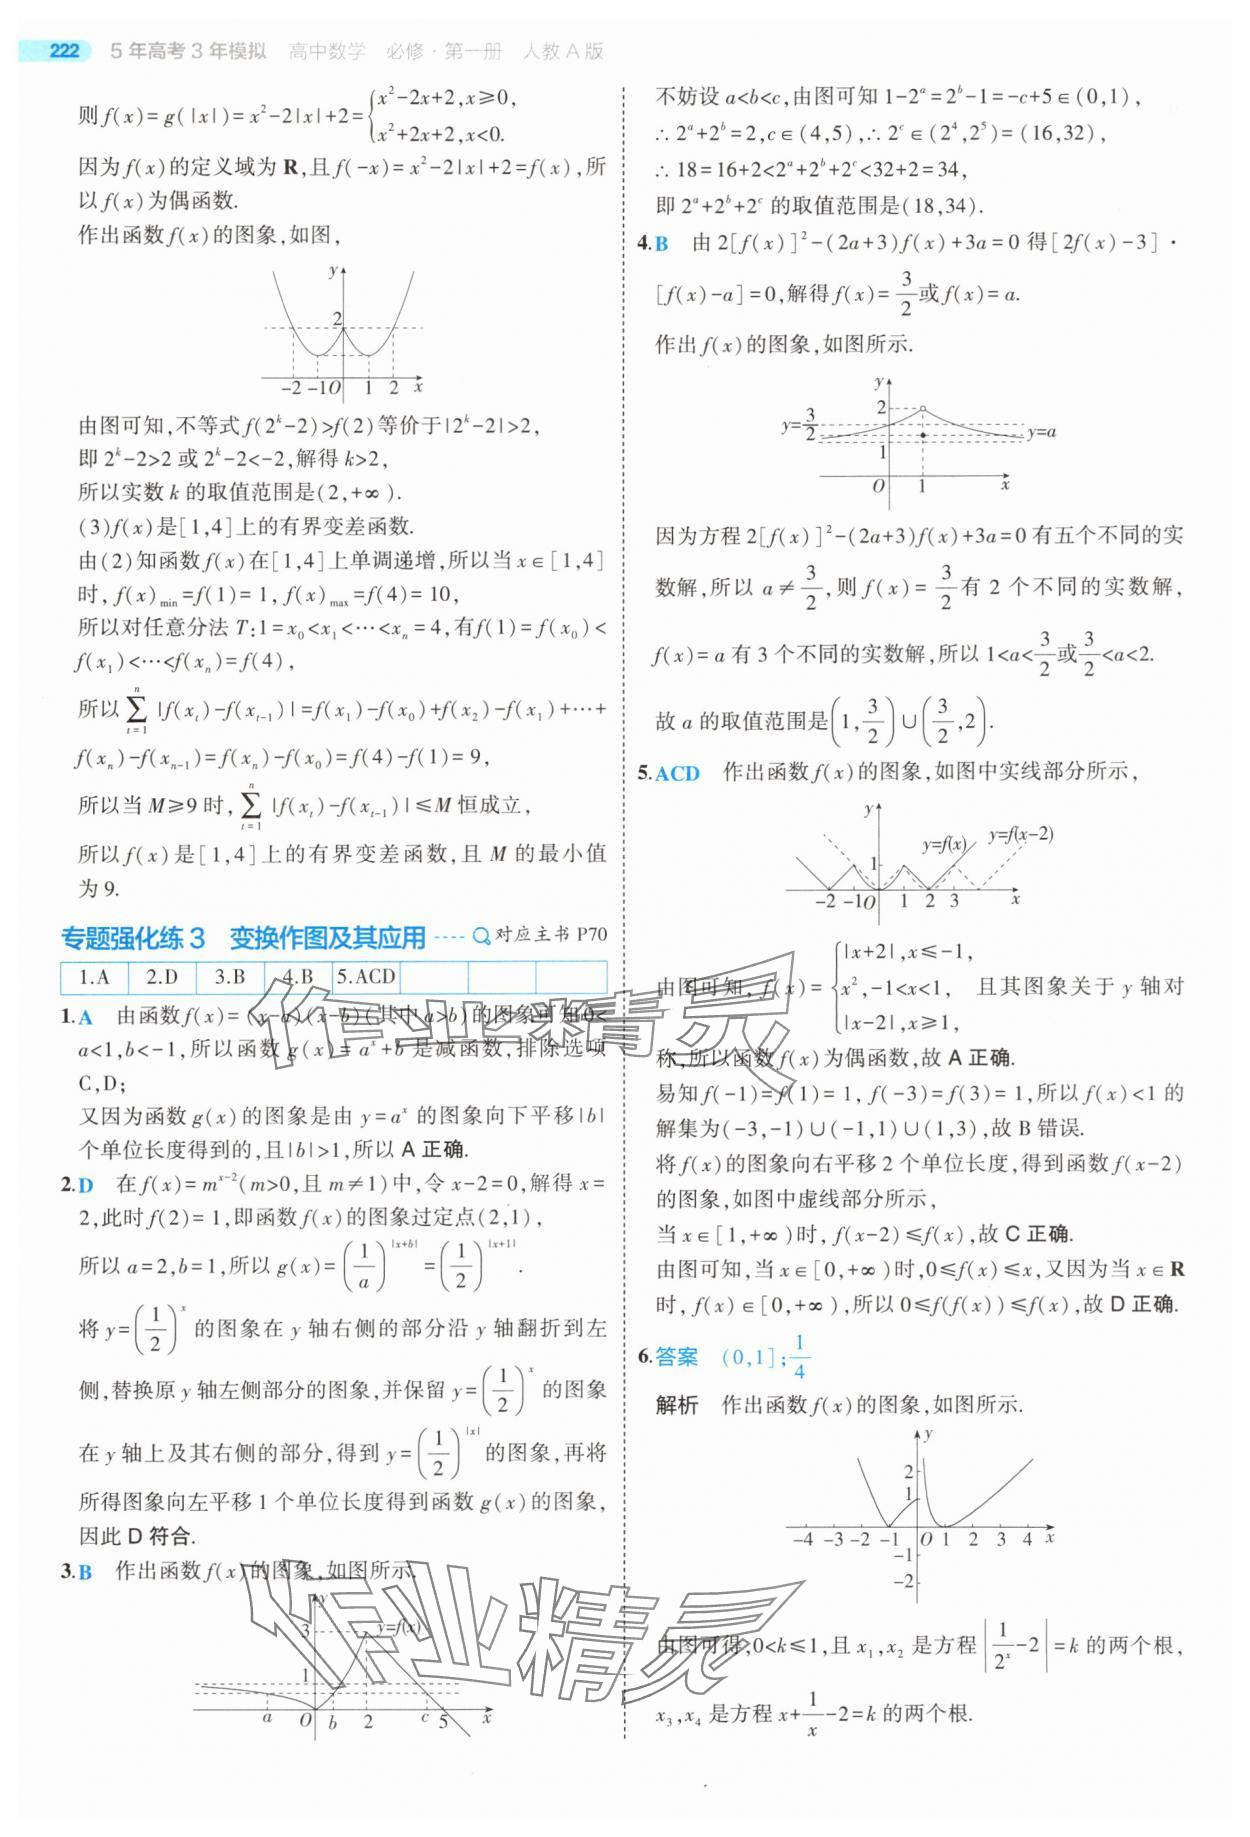 222 5年高考3年模拟 高中数学 必修·第一册 人教A版
则f(x)=g(|x|)=x²-2|x|+2={x²-2x+2,x≥0,
x²+2x+2,x<0.
因为f(x)的定义域为R,且f(-x)=x²-2|x|+2=f(x),所
以f(x)为偶函数.
作出函数f(x)的图象,如图,
y
2
-2 -1 O 1 2 x
由图可知,不等式f(2^k-2)>f(2)等价于|2^k-2|>2,
即2^k-2>2或2^k-2<-2,解得k>2,
所以实数k的取值范围是(2,+∞).
(3)f(x)是[1,4]上的有界变差函数.
由(2)知函数f(x)在[1,4]上单调递增,所以当x∈[1,4]
时,f(x)min=f(1)=1,f(x)max=f(4)=10,
所以对任意分法T:1=x₀<x₁<…<xₙ=4,有f(1)=f(x₀)<
f(x₁)<…<f(xₙ)=f(4),
所以∑(t=1→n)|f(x_t)-f(x_{t-1})|=f(x₁)-f(x₀)+f(x₂)-f(x₁)+…+
f(xₙ)-f(x_{n-1})=f(xₙ)-f(x₀)=f(4)-f(1)=9,
所以当M≥9时,∑(t=1→n)|f(x_t)-f(x_{t-1})|≤M恒成立,
所以f(x)是[1,4]上的有界变差函数,且M的最小值
为9.
专题强化练3 变换作图及其应用 对应主书P70
1.A 2.D 3.B 4.B 5.ACD
1.A 由函数f(x)=(x-a)(x-b)(其中a>b)的图象可知0<
a<1,b<-1,所以函数g(x)=a^x+b是减函数,排除选项
C,D;
又因为函数g(x)的图象是由y=a^x的图象向下平移|b|
个单位长度得到的,且|b|>1,所以A正确.
2.D 在f(x)=m^{x-2}(m>0,且m≠1)中,令x-2=0,解得x=
2,此时f(2)=1,即函数f(x)的图象过定点(2,1),
所以a=2,b=1,所以g(x)=(1/a)^{|x+b|}=(1/2)^{|x+1|}.
将y=(1/2)^x的图象在y轴右侧的部分沿y轴翻折到左
侧,替换原y轴左侧部分的图象,并保留y=(1/2)^x的图象
在y轴上及其右侧的部分,得到y=(1/2)^{|x|}的图象,再将
所得图象向左平移1个单位长度得到函数g(x)的图象,
因此D符合.
3.B 作出函数f(x)的图象,如图所示.
y
3 y=f(x)
1
a O b 2 c 5 x
不妨设a<b<c,由图可知1-2^a=2^b-1=-c+5∈(0,1),
∴2^a+2^b=2,c∈(4,5),∴2^c∈(2⁴,2⁵)=(16,32),
∴18=16+2<2^a+2^b+2^c<32+2=34,
即2^a+2^b+2^c的取值范围是(18,34).
4.B 由2[f(x)]²-(2a+3)f(x)+3a=0得[2f(x)-3]·
[f(x)-a]=0,解得f(x)=3/2或f(x)=a.
作出f(x)的图象,如图所示.
y
2
y=3/2 y=a
1
O 1 x
因为方程2[f(x)]²-(2a+3)f(x)+3a=0有五个不同的实
数解,所以a≠3/2,则f(x)=3/2有2个不同的实数解,
f(x)=a有3个不同的实数解,所以1<a<3/2或3/2<a<2.
故a的取值范围是(1,3/2)∪(3/2,2).
5.ACD 作出函数f(x)的图象,如图中实线部分所示,
y
y=f(x) y=f(x-2)
1
-2 -1 O 1 2 3 x
由图可知,f(x)={|x+2|,x≤-1,
x²,-1<x<1, 且其图象关于y轴对
|x-2|,x≥1,
称,所以函数f(x)为偶函数,故A正确.
易知f(-1)=f(1)=1,f(-3)=f(3)=1,所以f(x)<1的
解集为(-3,-1)∪(-1,1)∪(1,3),故B错误.
将f(x)的图象向右平移2个单位长度,得到函数f(x-2)
的图象,如图中虚线部分所示,
当x∈[1,+∞)时,f(x-2)≤f(x),故C正确.
由图可知,当x∈[0,+∞)时,0≤f(x)≤x,又因为当x∈R
时,f(x)∈[0,+∞),所以0≤f(f(x))≤f(x),故D正确.
6.答案 (0,1];1/4
解析 作出函数f(x)的图象,如图所示.
y
2
1
-4 -3 -2 -1 O 1 2 3 4 x
-1
-2
由图可得,0<k≤1,且x₁,x₂是方程|1/2^x-2|=k的两个根,
x₃,x₄是方程x+1/x-2=k的两个根.
作业精灵
作业精灵